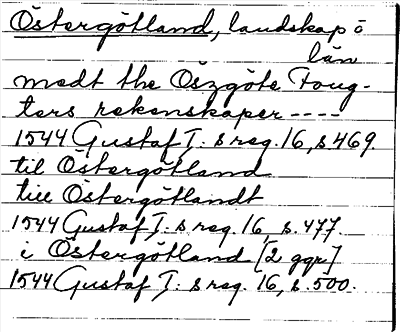 Östergötland, landskap o
län
medt the Öszgöte Foug-
ters rekenskaper ----
1544 Gustaf I:s reg. 16, s. 469.
til Östergötland
till Östergötlandt
1544 Gustaf I:s reg. 16, s. 477.
i Östergötland [2 ggr]
1544 Gustaf I:s reg. 16, s. 500.